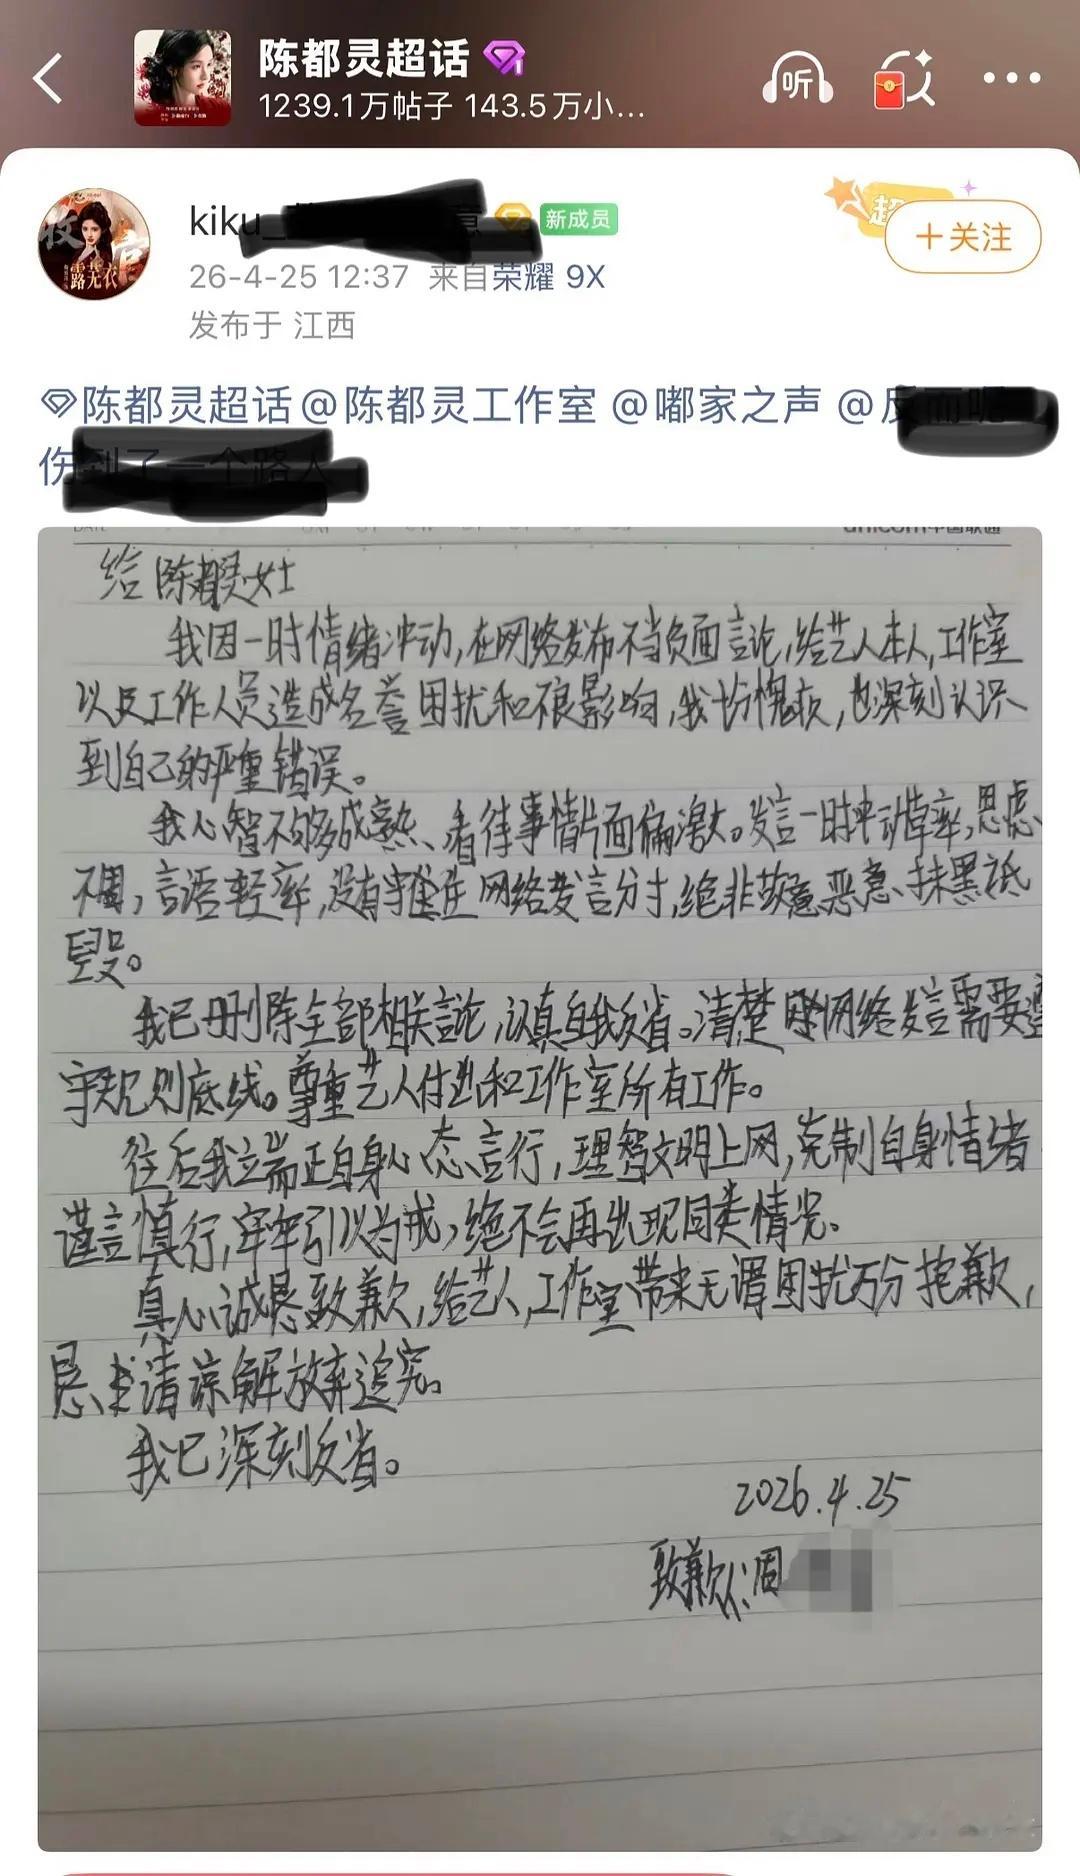 陈都灵超话
1239.1万帖子 143.5万小...
听
kiku_
新成员
超
+关注
26-4-25 12:37 来自荣耀 9X
发布于 江西
陈都灵超话@陈都灵工作室 @嘟家之声 @反而呢
伤到了一个路人
unicom中国联通
给陈都灵女士
我因一时情绪冲动,在网络发布不当负面言论,给艺人本人,工作室
以及工作人员造成名誉困扰和不良影响,我十分愧疚,也深刻认识
到自己的严重错误。
我心智不够成熟、看待事情片面偏激。发言一时冲动草率,思虑
不周,言语轻率,没有守住网络发言分寸,绝非故意恶意、抹黑诋
毁。
我已删除全部相关言论,认真自我反省。清楚网络发言需要遵
守规则底线。尊重艺人付出和工作室所有工作。
往后我立端正自身心态言行,理智文明上网,克制自身情绪
谨言慎行,牢牢引以为戒,绝不会再出现同类情况。
真心诚恳致歉,给艺人,工作室带来无谓困扰万分抱歉,
恳求请谅解放弃追究。
我已深刻反省。
2026.4.25
致歉人:周